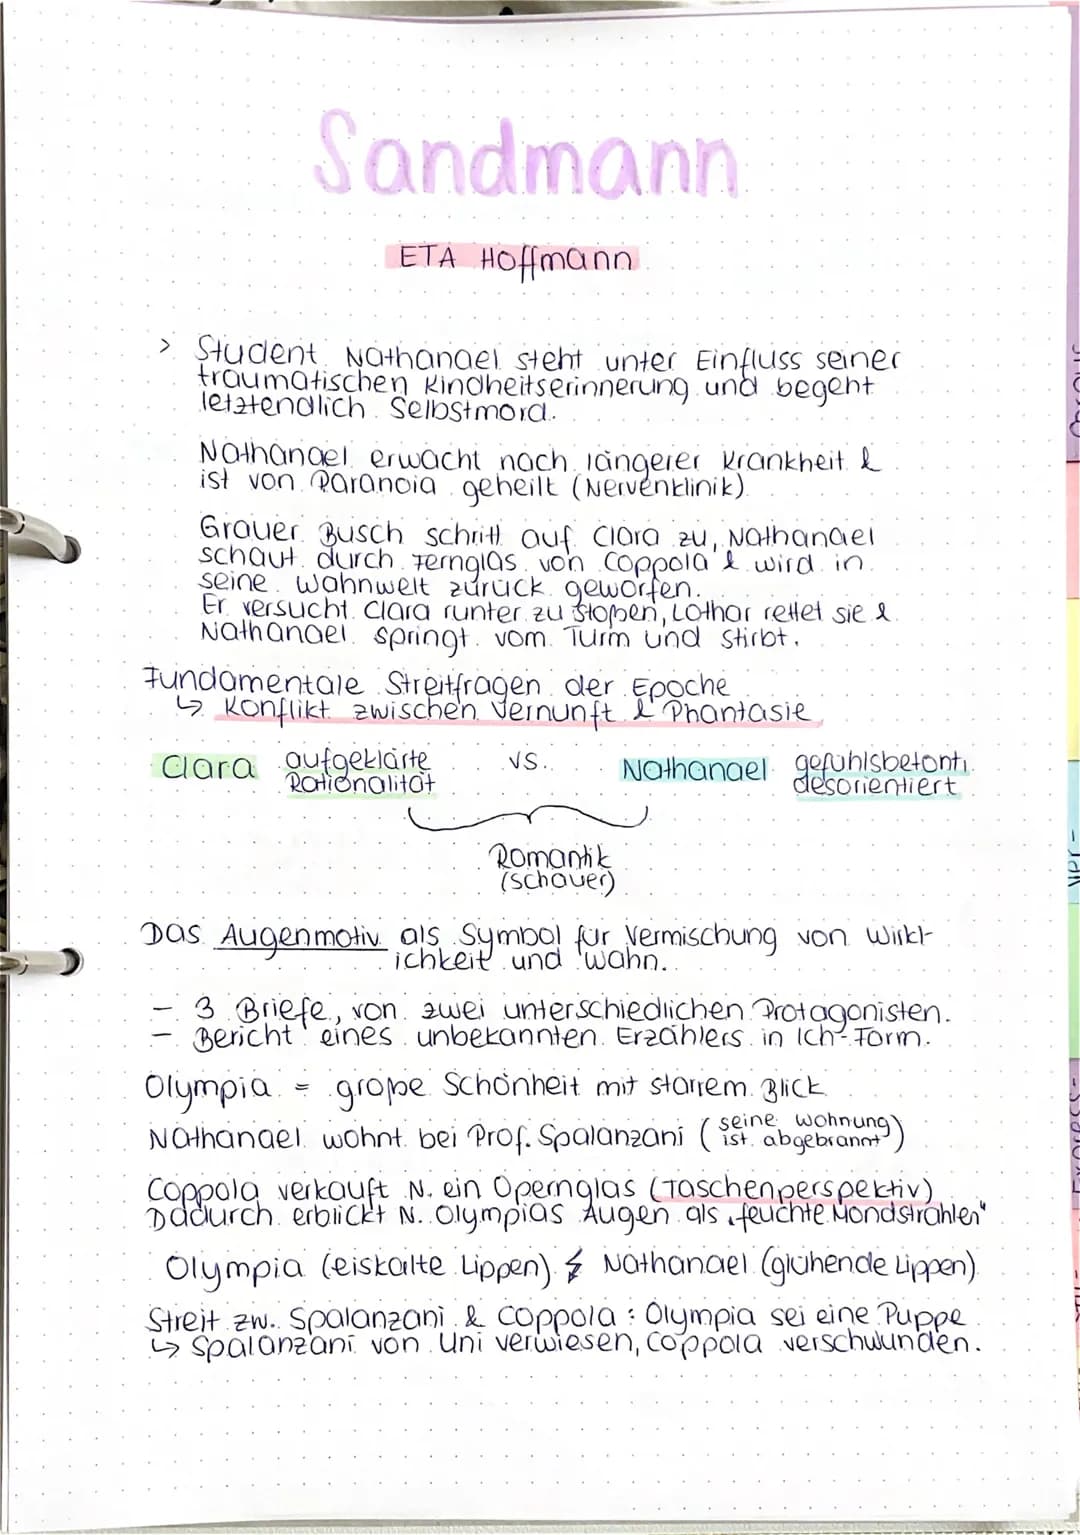 Sandmann
ETA Hoffmann
> Student Nathanael steht unter Einfluss seiner
traumatischen Kindheitserinnerung und begeht
letztendlich Selbstmord.
Nathanael erwacht nach längerer Krankheit &
ist von Paranoia geheilt (Nervenklinik)
Grauer Busch schritt auf Clara zu, Nathanael
schaut durch Fernglas von Coppola & wird in
seine Wahnwelt zurück geworfen.
Er versucht Clara runter zu stoßen, Lothar rettet sie &
Nathanael springt vom Turm und stirbt.
Fundamentale Streitfragen der Epoche
↳ Konflikt zwischen Vernunft & Phantasie
Clara aufgeklärte vs. Nathanael gefühlsbetont,
Rationalität desorientiert
Romantik
(schauer)
Das Augenmotiv als Symbol für Vermischung von Wirkl-
ichkeit und Wahn.
- 3 Briefe, von zwei unterschiedlichen Protagonisten.
- Bericht eines unbekannten Erzählers in Ich-Form.
Olympia = große Schönheit mit starrem Blick
Nathanael wohnt bei Prof. Spalanzani (seine Wohnung
ist abgebrannt)
Coppola verkauft N. ein Opernglas (Taschenperspektiv)
Dadurch erblickt N. Olympias Augen als „feuchte Mondstrahlen"
Olympia (eiskalte Lippen) ↯ Nathanael (glühende Lippen)
Streit zw. Spalanzani & Coppola : Olympia sei eine Puppe
↳ Spalanzani von Uni verwiesen, Coppola verschwunden.